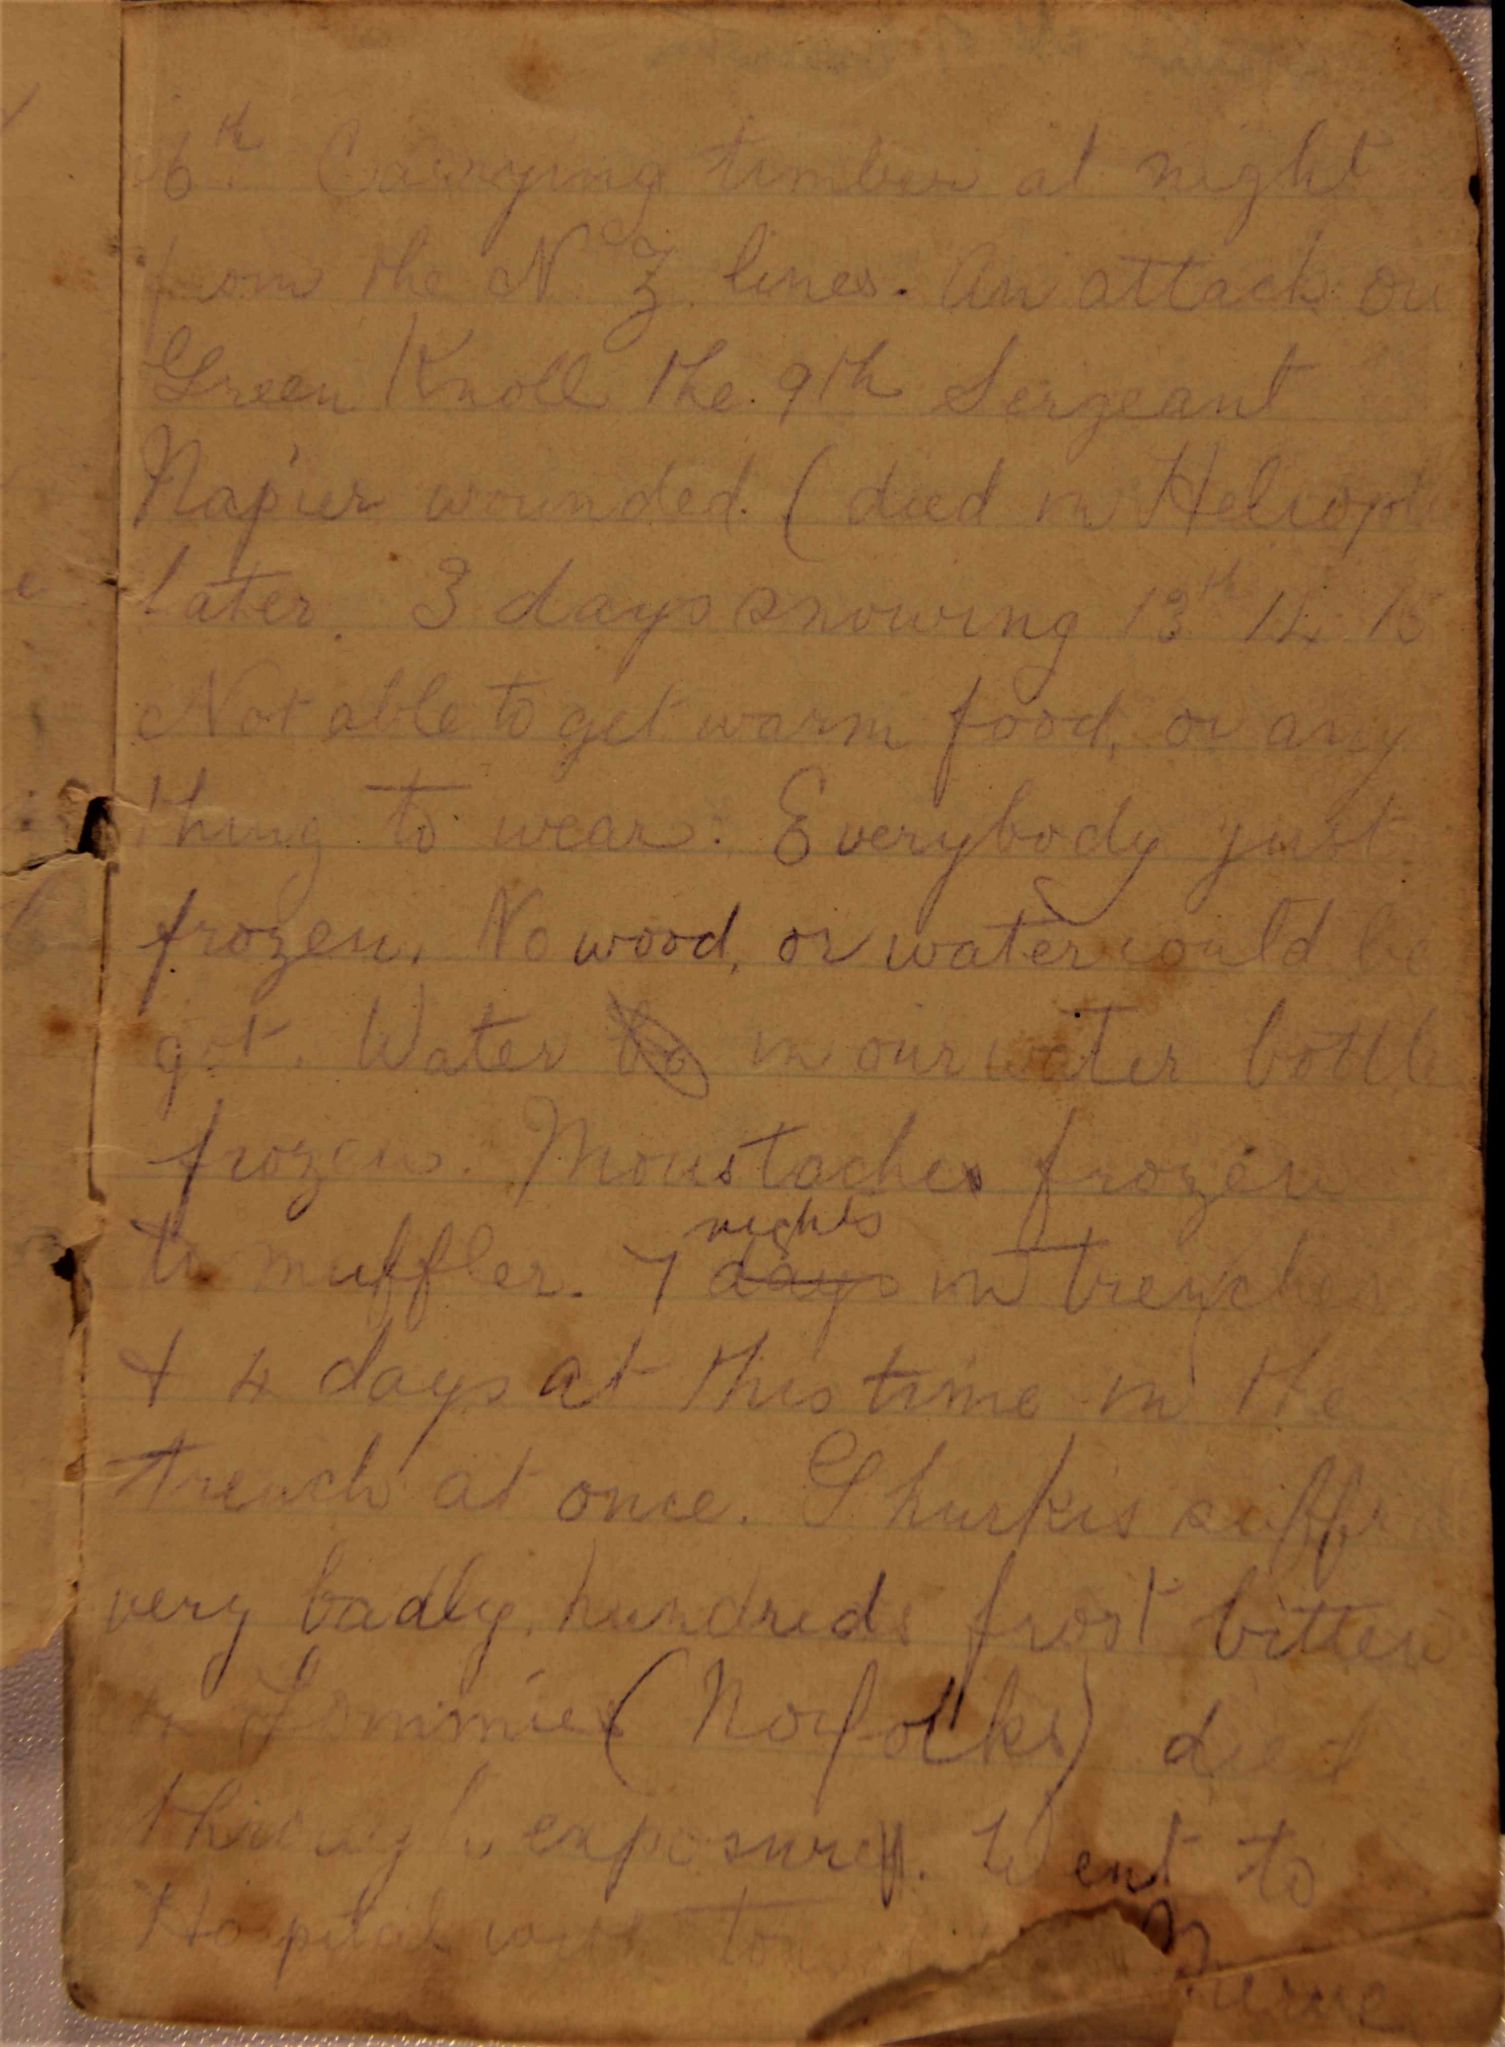 6th Carrying timber at night
from the N Z lines. An attack on
Green Knoll the 9th Sergeant
Napier wounded. (died in Heliopo
later. 3 days snowing 13th 14 15
Not able to get warm food, or any
thing to wear. Everybody just
frozen. No wood, or water could be
got. Water in our water bottle
frozen. Moustaches frozen
to muffler. 7 nights days in trenches
& 4 days at this time in the
trench at once. Ghurkis suffer
very badly, hundreds frost bitten
4 Tommies (Norfolks) died
through exposure. Went to
Hospital with